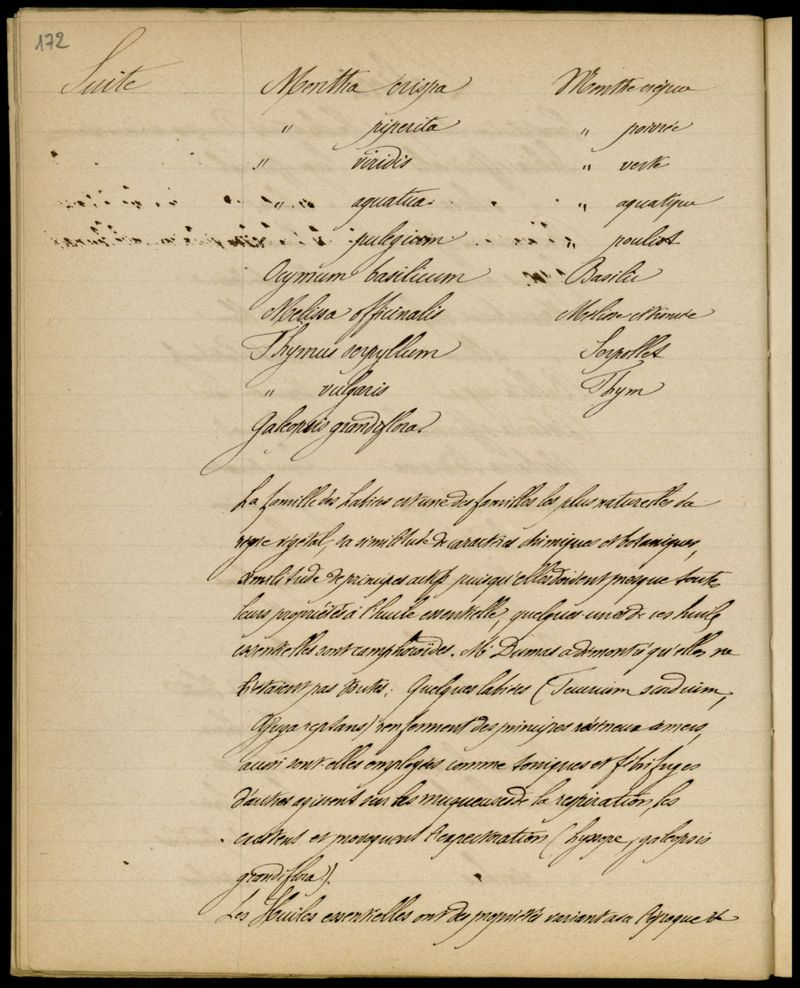 172
Suite Mentha crispa Menthe crépue
" piperita " poivrée
" viridis " verte
" aquatica " aquatique
" pulegium " pouliot
Ocymum basilicum Basilic
Melissa officinalis Melisse citronée
Thymus serpyllum Serpollet
" vulgaris Thym
Galeopsis grandiflora.
La famille des Labiées est une des familles les plus naturelles du
regne végétal, sa similitude de caractères chimiques et botaniques,
similitude de principes actifs puisqu'elles doivent presque toute
leurs propriétés à l'huile essentielle, quelques unes de ces huiles
essentielles sont camphoroïdes. Mr Dumas a démontré qu'elles ne
l'étaient pas toutes. Quelques labiées (Teucrium scordium,
Ajuga reptans) renferment des principes résineux amers,
aussi sont-elles employées comme toniques et fébrifuges
d'autres agissent sur les muqueuses de la respiration, les
excitent et provoquent l'expectoration (hyssope, galeopsis
grandiflora).
Les Huiles essentielles ont des propriétés variant à l'époque de